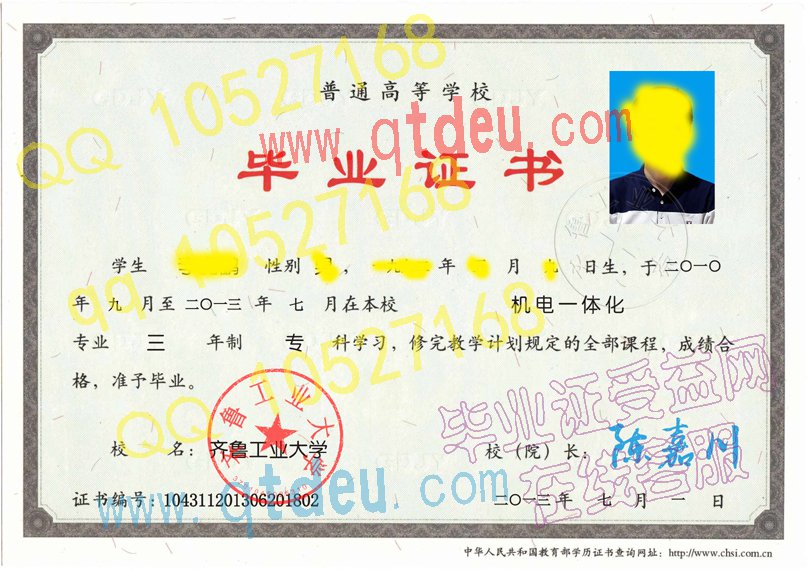 普通高等学校
毕业证书
学生 性别 ， 年 月 日生，于二〇一〇
年 九 月至 二〇一三 年 七 月在本校 机电一体化
专业 三 年制 专 科学习，修完教学计划规定的全部课程，成绩合
格，准予毕业。
校 名：齐鲁工业大学
校（院）长：陈嘉川
齐鲁工业大学
证书编号：104311201306201802
二〇一三年 七 月 一 日
中华人民共和国教育部学历证书查询网址：http://www.chsi.com.cn
QQ 10527168
www.qtdeu.com
QQ 10527168
qq 10527168
QQ 10527168
毕业证受益网
在线客服
www.qtdeu.com